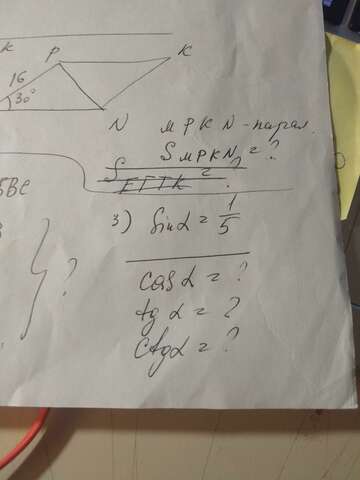 к
P
K
16
30°
N
MPKN - парал.
S MPKN = ?
S EFTK = ?
3) Sin α = 1/5
?
cos α = ?
tg α = ?
ctg α = ?